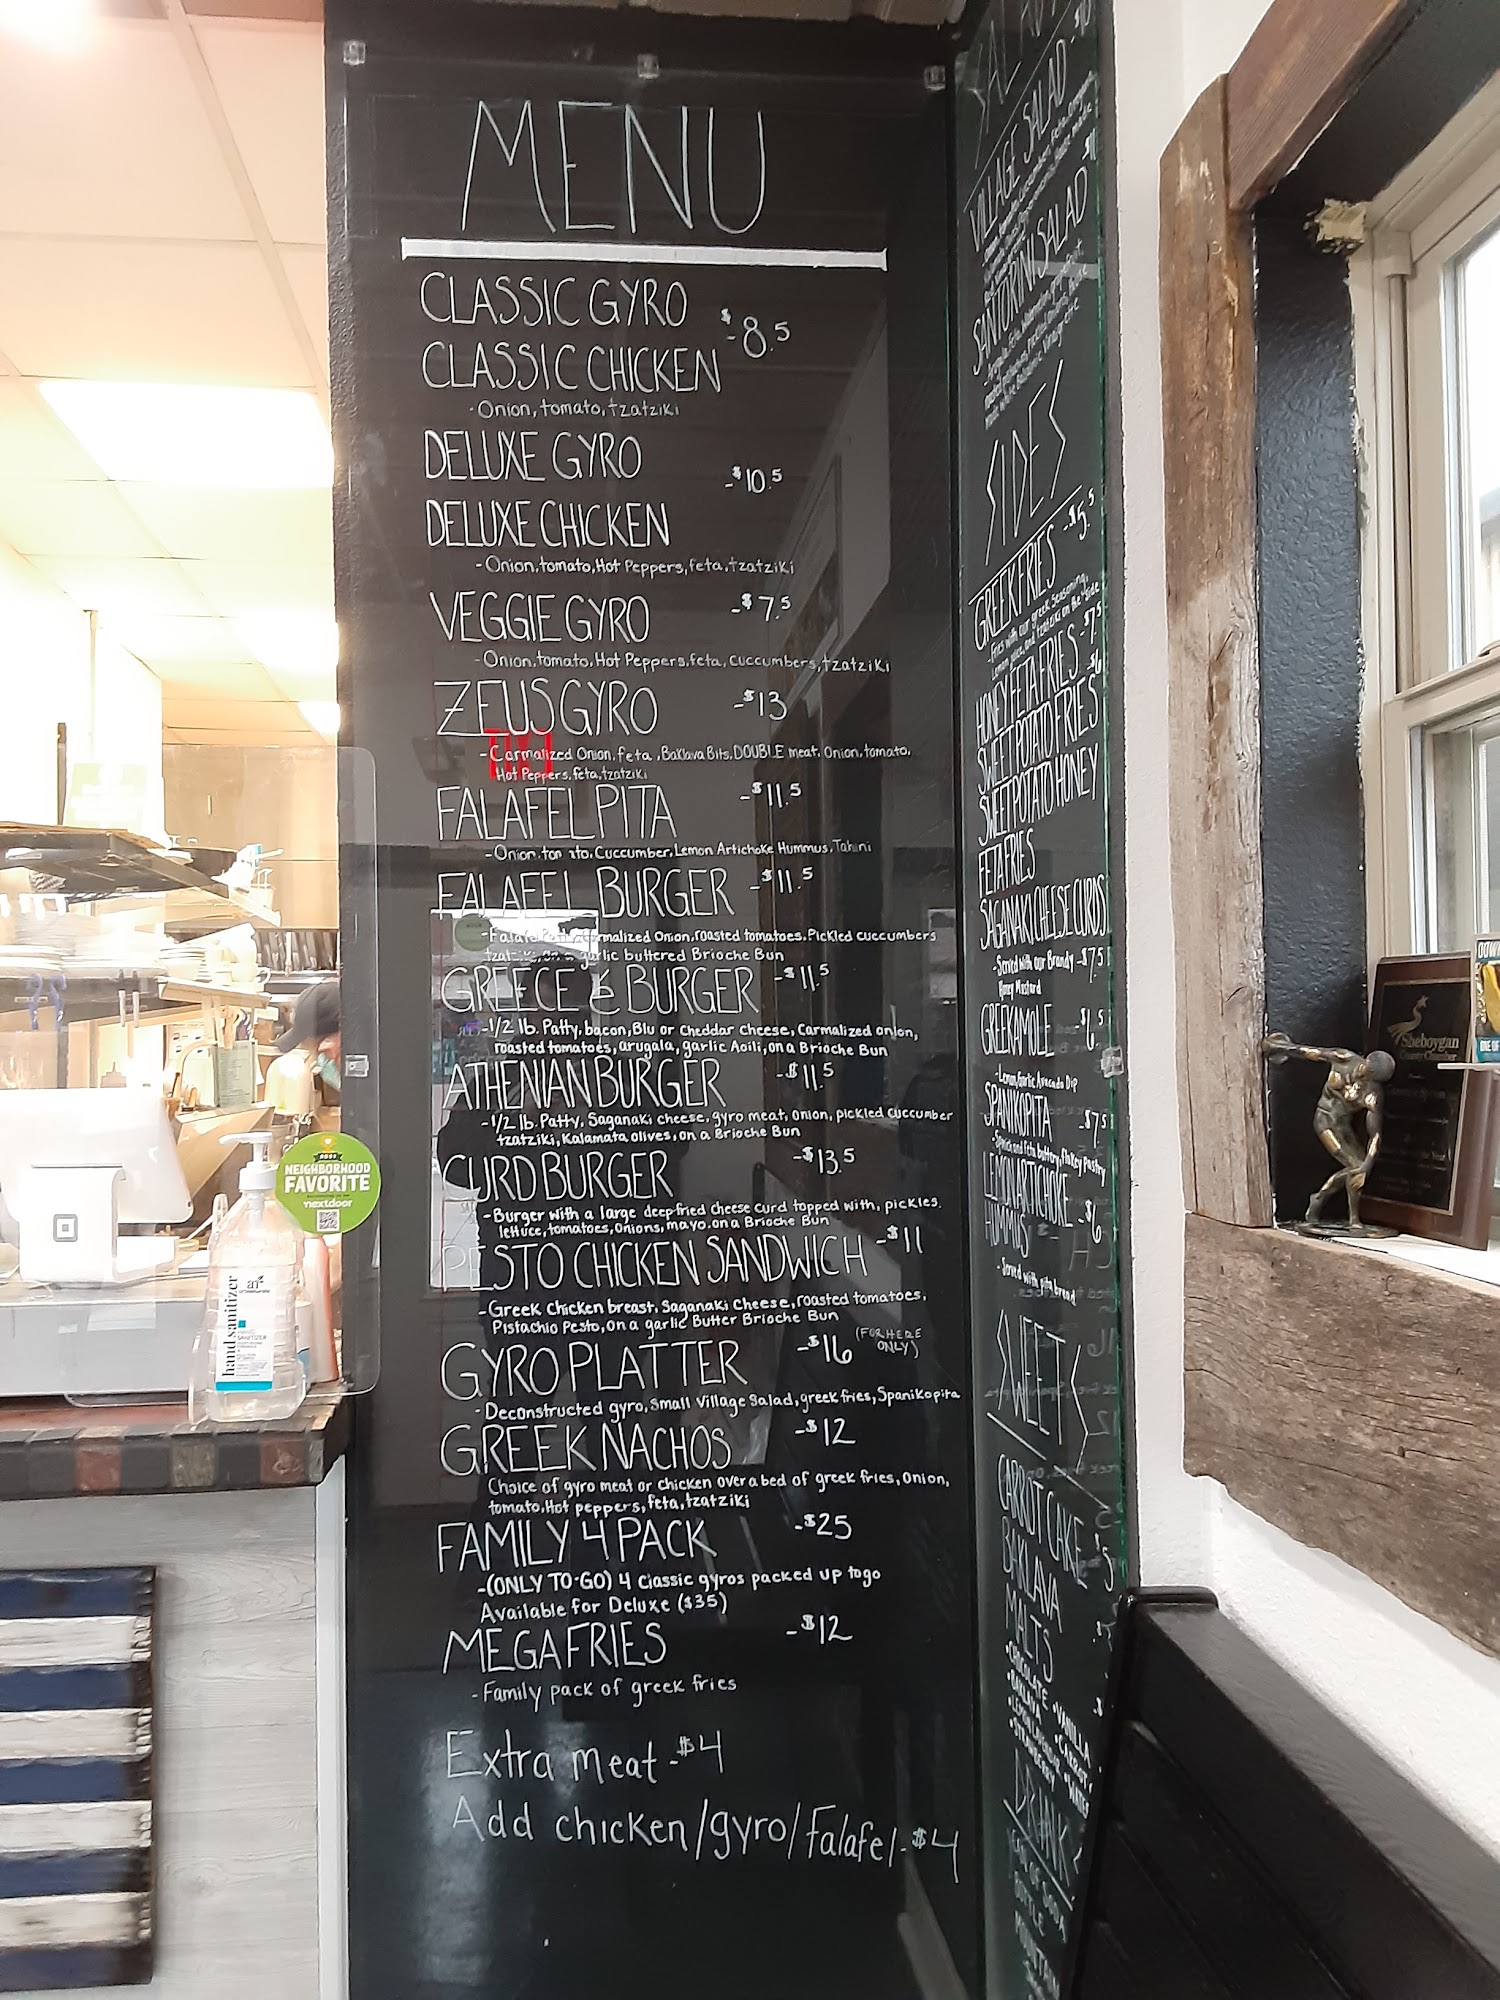 MENU
CLASSIC GYRO
CLASSIC CHICKEN
-$8.5
- Onion, tomato, tzatziki
DELUXE GYRO
-$10.5
DELUXE CHICKEN
- Onion, tomato, Hot Peppers, feta, tzatziki
VEGGIE GYRO -$7.5
- Onion, tomato, Hot Peppers, feta, cuccumbers, tzatziki
ZEUS GYRO -$13
- Carmalized Onion, feta, Baklava Bits, DOUBLE meat, Onion, tomato,
Hot Peppers, feta, tzatziki
FALAFEL PITA -$11.5
- Onion, tomato, Cuccumber, Lemon Artichoke Hummus, Tahini
FALAFEL BURGER -$11.5
- Falafel Patty, Carmalized Onion, roasted tomatoes, Pickled cuccumbers
tzatziki, on a garlic buttered Brioche Bun
GREECE é BURGER -$11.5
- 1/2 lb. Patty, bacon, Blu or Cheddar cheese, Carmalized onion,
roasted tomatoes, arugala, garlic Aoili, on a Brioche Bun
ATHENIAN BURGER -$11.5
- 1/2 lb. Patty, Saganaki cheese, gyro meat, onion, pickled cuccumber
tzatziki, Kalamata olives, on a Brioche Bun
CURD BURGER -$13.5
- Burger with a large deep fried cheese curd topped with, pickles,
lettuce, tomatoes, onions, mayo, on a Brioche Bun
PESTO CHICKEN SANDWICH -$11
- Greek Chicken breast, Saganaki Cheese, roasted tomatoes,
Pistachio Pesto, on a garlic Butter Brioche Bun
GYRO PLATTER -$16 (FOR HERE
ONLY)
- Deconstructed gyro, Small Village Salad, greek fries, Spanikopita
GREEK NACHOS -$12
Choice of gyro meat or chicken over a bed of greek fries, onion,
tomato, Hot peppers, feta, tzatziki
FAMILY 4 PACK -$25
- (ONLY TO-GO) 4 Classic gyros packed up to go
Available for Deluxe ($35)
MEGA FRIES -$12
- Family pack of greek fries
Extra meat -$4
Add chicken/gyro/falafel -$4
VILLAGE SALAD
SANTORINI SALAD
SIDES
GREEK FRIES -$5.5
- Fries with our greek seasoning,
Lemon juice, and tzatziki on the side
HONEY FETA FRIES -$7.5
SWEET POTATO FRIES -$6
SWEET POTATO HONEY
FETA FRIES
SAGANAKI CHEESE CURDS
- Served with our Brandy -$7.5
Honey Mustard
GREEKAMOLE -$6.5
- Lemon/Garlic Avocado Dip
SPANIKOPITA -$7.5
- Spinach and feta buttery, flakey Pastry
LEMON ARTICHOKE
HUMMUS -$6
- Served with pita bread
SWEET
CARROT CAKE
BAKLAVA
MALTS
• CHOCOLATE • VANILLA
• BAKLAVA • CARROT
• STRAWBERRY
DRINK
NEIGHBORHOOD
FAVORITE
nextdoor
hand sanitizer
Sheboygan